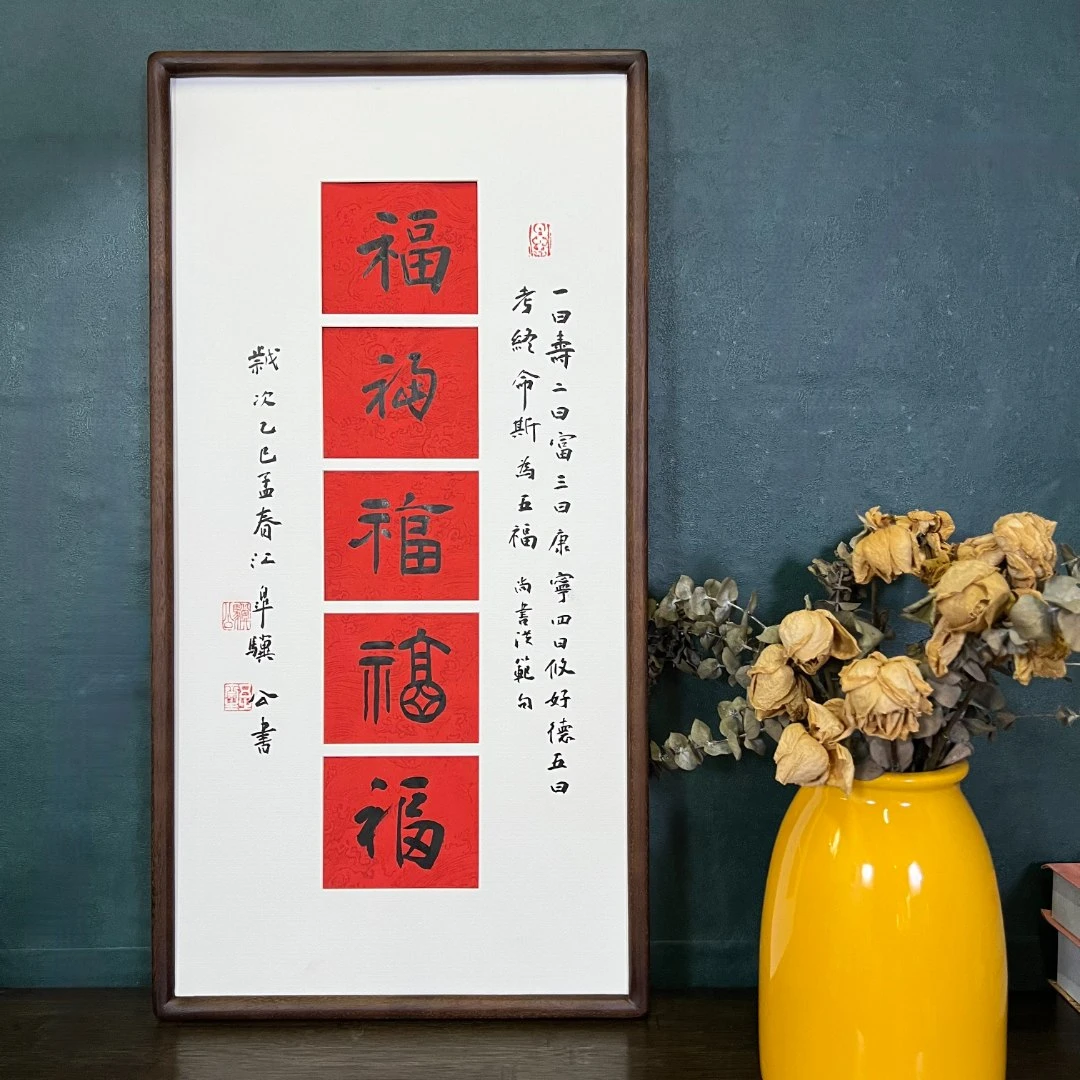 一曰壽二曰富三曰康寧四曰攸好德五曰
考終命斯為五福
尚書洪範句
福
福
福
福
福
歲次乙巳孟春江皐驥公書